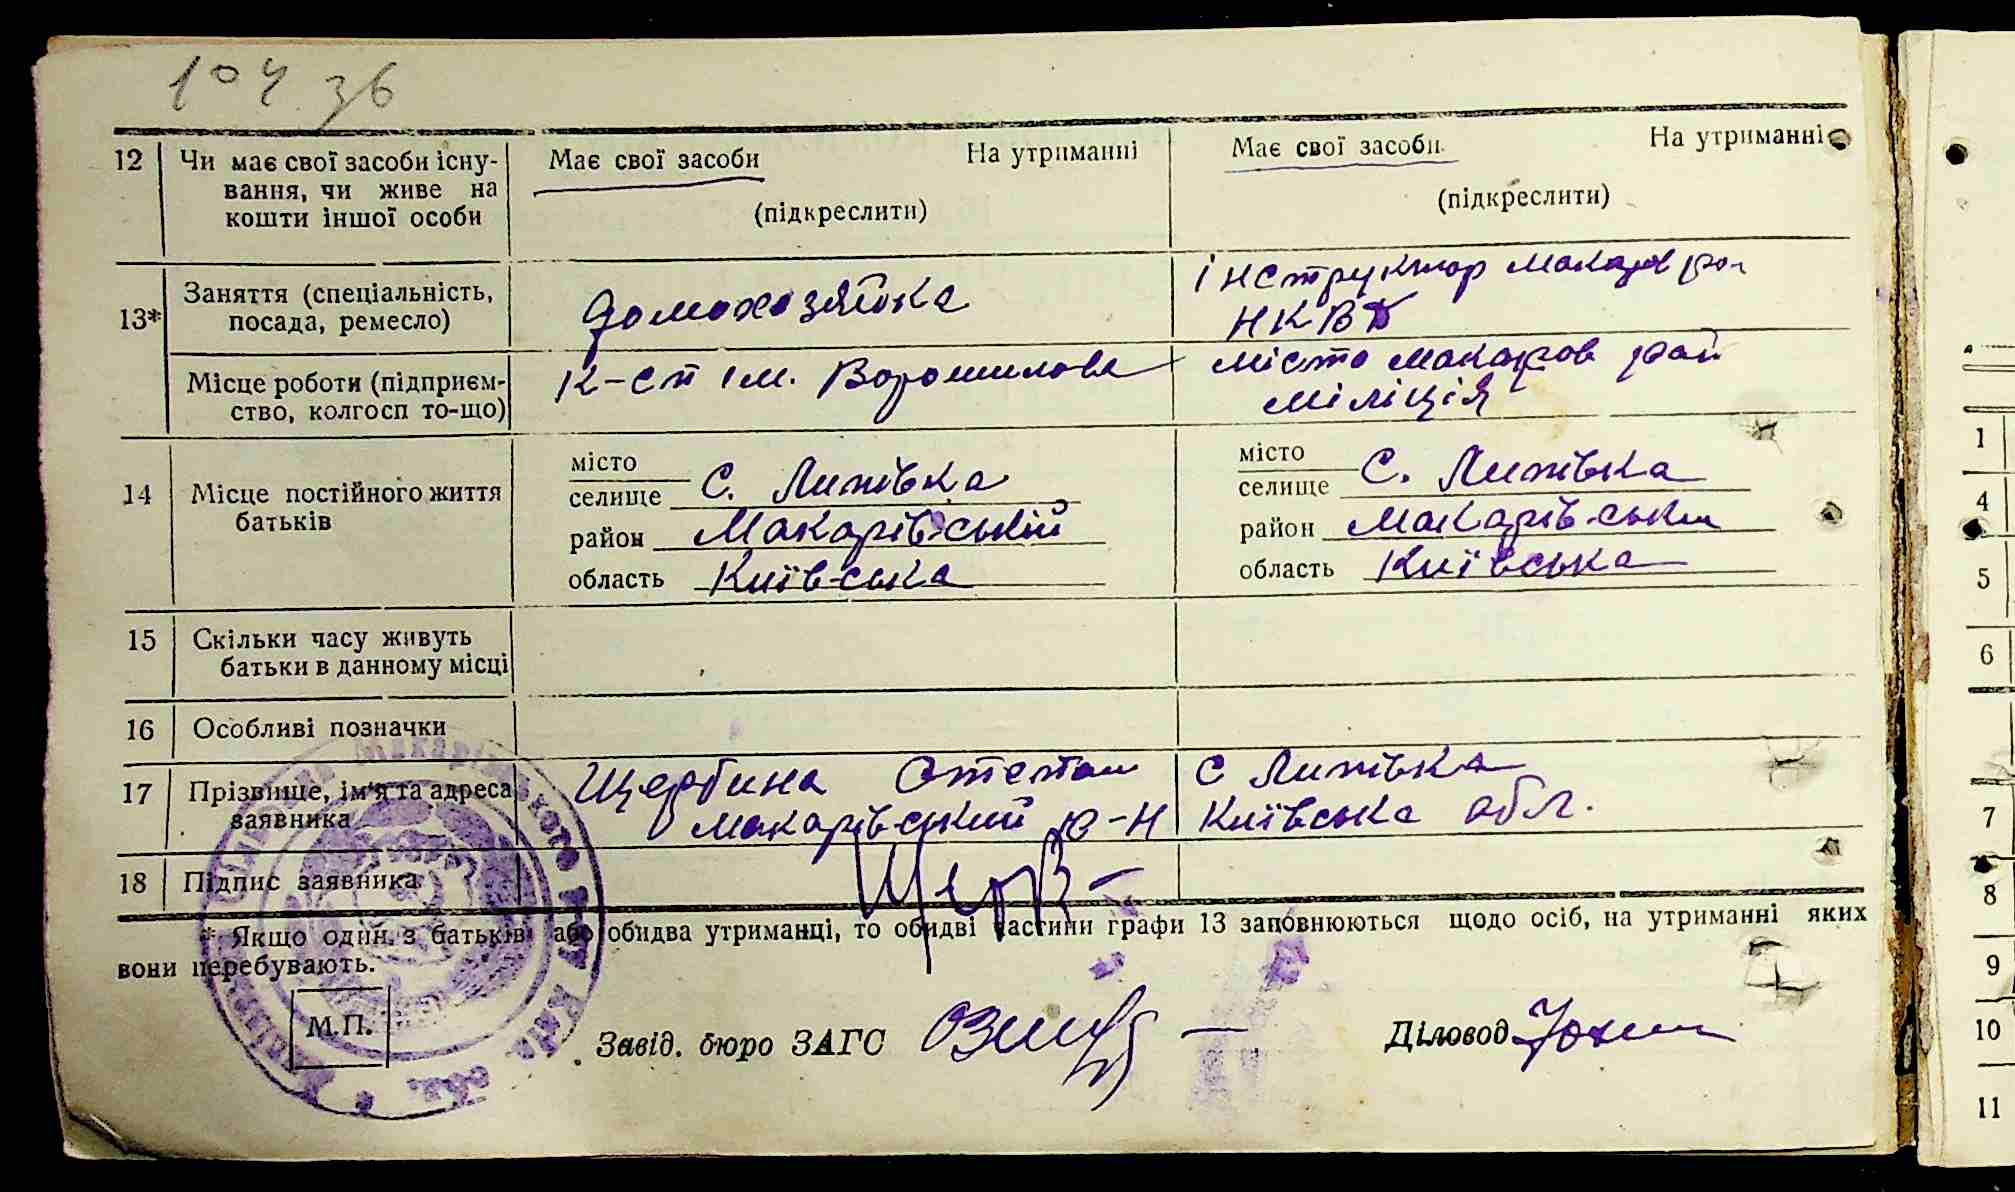 104 36
12 Чи має свої засоби існу- Має свої засоби На утриманні Має свої засоби На утриманні
вання, чи живе на
кошти іншої особи (підкреслити) (підкреслити)
13* Заняття (спеціальність, домохозяйка інструктор Макаров рай
посада, ремесло) НКВД
Місце роботи (підприєм- К-сп ім. Ворошилова місто Макаров рай
ство, колгосп то-що) міліція
14 Місце постійного життя місто місто
батьків селище С. Липівка селище С. Липівка
район Макарівський район Макарівський
область Київська область Київська
15 Скільки часу живуть
батьки в данному місці
16 Особливі позначки
17 Прізвище, ім'я та адреса Щербина Степан С Липівка
заявника Макарівський р-н Київська обл.
18 Підпис заявника Щерб
* Якщо один з батьків або обидва утриманці, то обидві частини графи 13 заповнюються щодо осіб, на утриманні яких
вони перебувають.
М.П.
Завід. бюро ЗАГС Діловод
Макарівського р-ну Київ. обл.
1
4
5
6
7
8
9
10
11